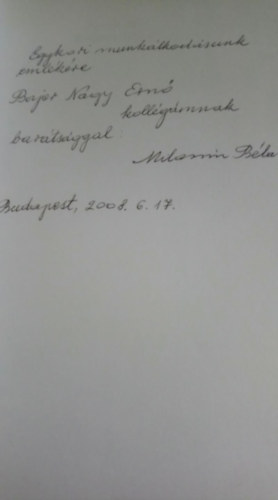 Egykori munkálkodásunk
emlékére
Bajor Nagy Ernő
kollégámnak
barátsággal.
Béla
Budapest, 2008. 6. 17.